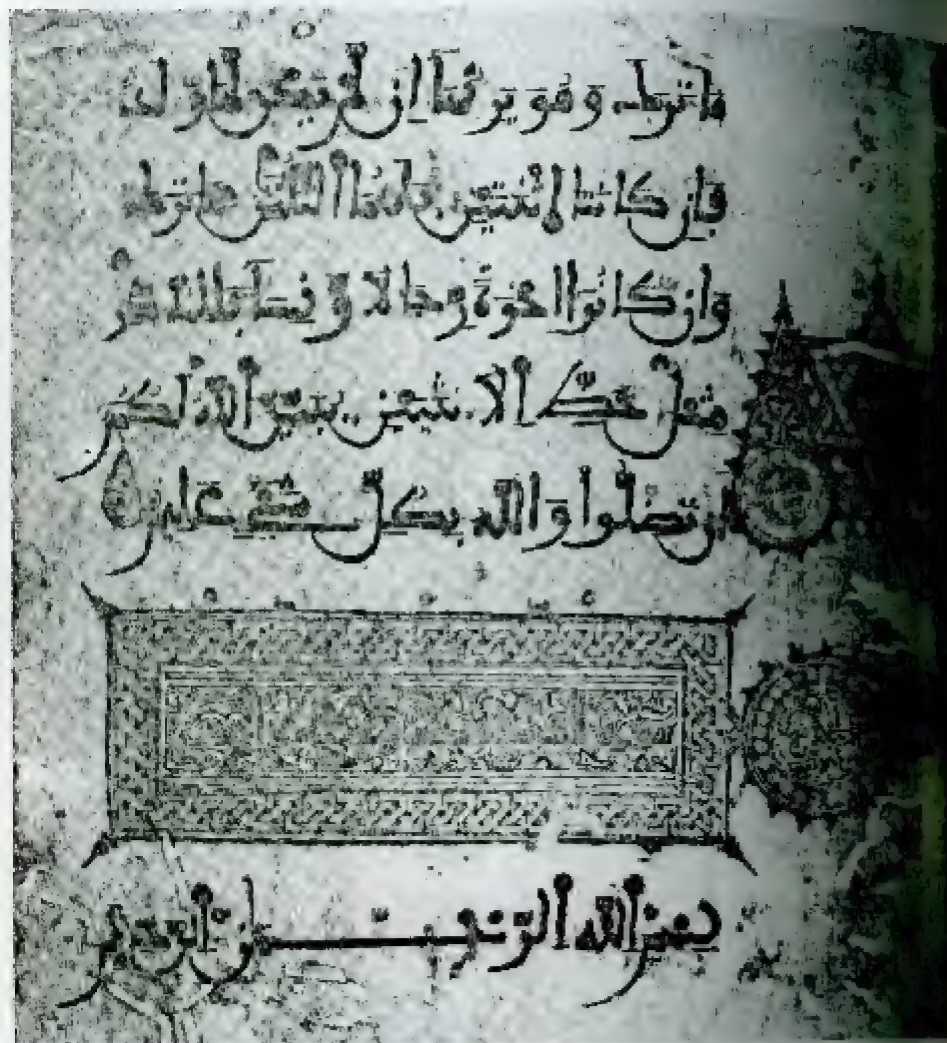 ما ترك وهو يرثها إن لم يكن لها ولد
فإن كانتا اثنتين فلهما الثلثن مما ترك
وإن كانوا إخوة رجالا ونساء فللذكر
مثل حظ الأنثيين يبين الله لكم
أن تضلوا والله بكل شيء عليم
بسم الله الرحمن الرحيم